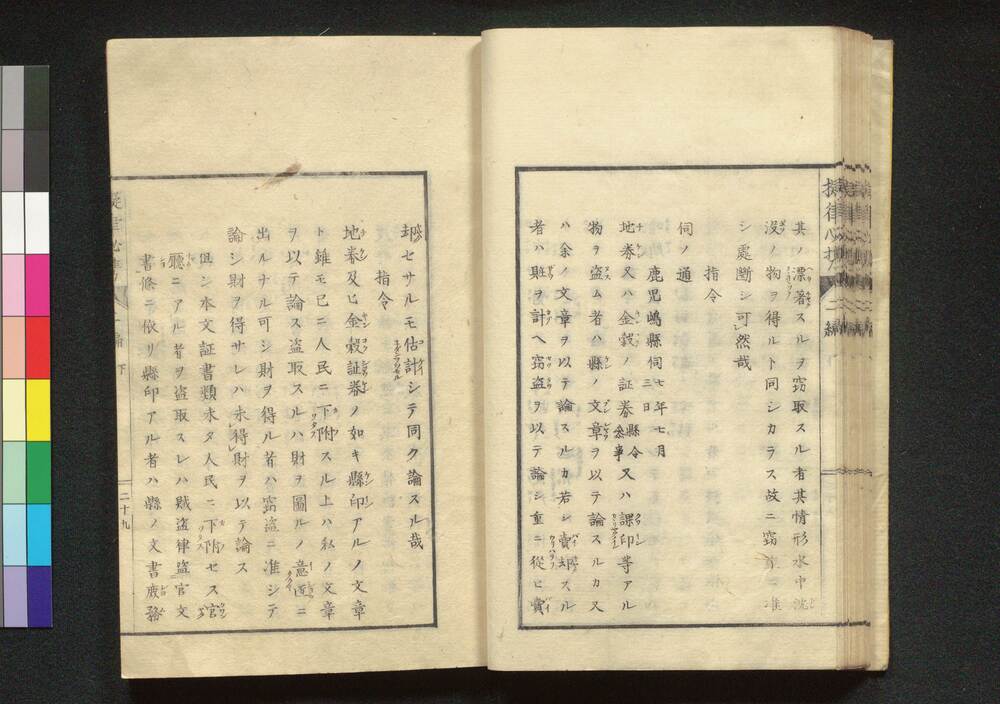 其ノ漂著スルヲ窃取スル者其情形水中沈
没ノ物ヲ得ルト同シカラス故ニ窃盗ニ准
シ處断シ可然哉
指令
伺ノ通
鹿児嶋縣伺 七年七月三日
地券又ハ金穀ノ証券縣令参事又ハ課印等アル
物ヲ盗ム者ハ縣ノ文章ヲ以テ論スルカ又
ハ余ノ文章ヲ以テ論スルカ若シ賣却スル
者ハ賍ヲ計ヘ窃盗ヲ以テ論シ重ニ從ヒ賣
却セサルモ估計シテ同ク論スル哉
指令
地券及ヒ金穀証券ノ如キ縣印アルノ文章
ト雖モ已ニ人民ニ下附スル上ハ私ノ文章
ヲ以テ論ス盗取スルハ財ヲ圖ルノ意ニ
出ルナル可シ財ヲ得ル者ハ窃盗ニ准シテ
論シ財ヲ得サレハ未得財ヲ以テ論ス
但シ本文証書類未タ人民ニ下附セス官
廳ニアル者ヲ盗取スレハ賊盗律盗官文
書條ニ依リ縣印アル者ハ縣ノ文書廢務
二編
下
二十九